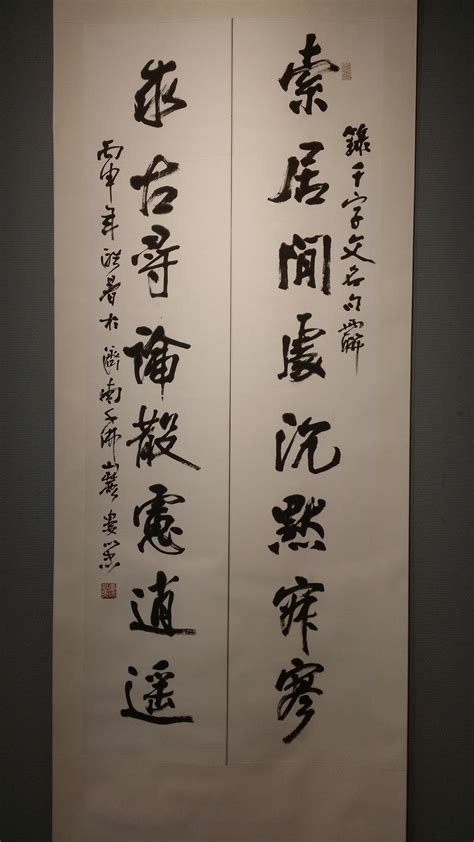 錄千字文名句
索居間處沉默寂寥
求古尋論散慮逍遙
丙申年酷暑於濟南千佛山麓